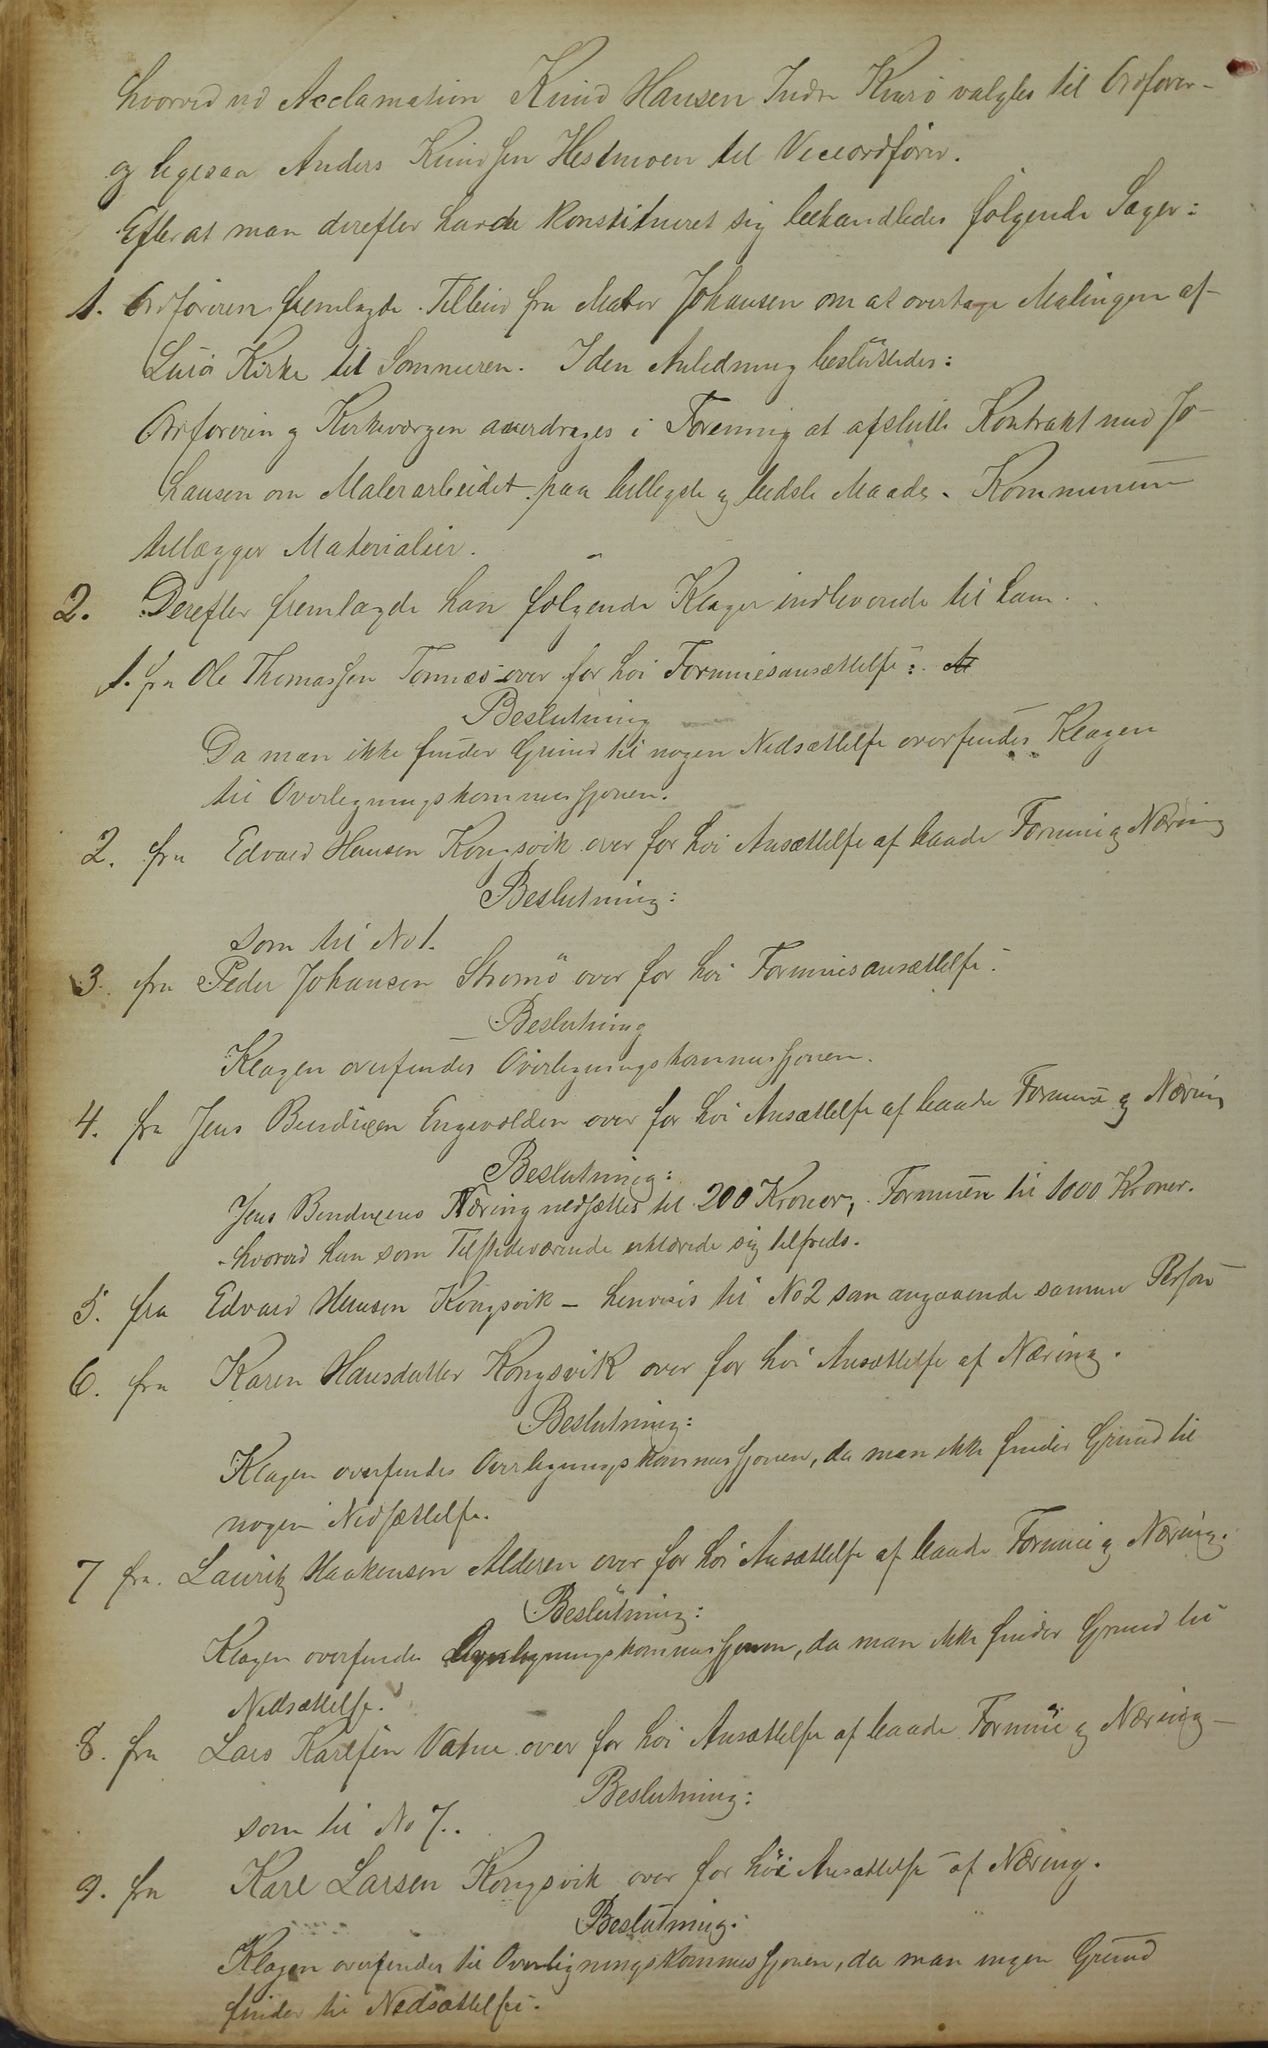 hvorved ved Acclamation Knud Hansen Indre Kvarö valgtes til Ordförer
og ligesaa Anders Knudsen Hestmoen til Viceordförer.
Efter at man derefter havde konstitueret sig behandledes fölgende Sager:
1. Ordföreren fremlagde Tilbud fra Maler Johansen om at overtage Malingen af
Lurö Kirke til Sommeren. I den Anledning besluttedes:
Ordföreren og Kirkeværgen overdrages i Forening at afslutte Kontrakt med Jo-
hansen om Malerarbeidet paa billigste og bedste Maade. Kommunen
tillægger Materialier.
2. Derefter fremlagde han fölgende Klager indleverede til ham.
1. fra Ole Thomassen Tonnes over for höi Formuesansættelse:
Beslutning
Da man ikke finder Grund til nogen Nedsættelse oversendes Klagen
til Overligningskommissjonen.
2. fra Edvard Hansen Kongsvik over for höi Ansættelse af baade Formue og Næring
Beslutning:
som til No 1.
3. fra Peder Johansen Stromö over for höi Formuesansættelse.
Beslutning
Klagen oversendes Overligningskommissjonen.
4. fra Jens Bendixen Engevolden over for höi Ansættelse af baade Formue og Næring
Beslutning:
Jens Bendixens Næring nedsættes til 200 Kroner, Formuen til 1000 Kroner.
hvorved han som Tilstedeværende erklærede sig tilfreds.
5. fra Edvard Hansen Kongsvik – henvises til No 2 som angaaende samme Person
6. fra Karen Hansdatter Kongsvik over for höi Ansættelse af Næring.
Beslutning:
Klagen oversendes Overligningskommissjonen, da man ikke finder Grund til
nogen Nedsættelse.
7 fra Lauritz Haakensen Alderen over for höi Ansættelse af baade Formue og Næring.
Beslutning:
Klagen oversendes Overligningskommissjonen, da man ikke finder Grund til
Nedsættelse.
8. fra Lars Karlsen Vatne over for höi Ansættelse af baade Formue og Næring –
Beslutning:
som til No 7.
9. fra Karl Larsen Kongsvik over for höi Ansættelse af Næring.
Beslutning:
Klagen oversendes til Overligningskommissjonen, da man ingen Grund
finder til Nedsættelse.